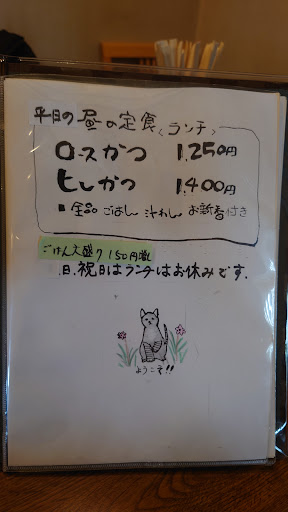 平日の昼の定食〈ランチ〉
ロースかつ 1,250円
ヒレかつ 1,400円
■全品 ごはん 汁わん お新香付き
ごはん大盛り150円増
日.祝日はランチはお休みです.
ようこそ!!